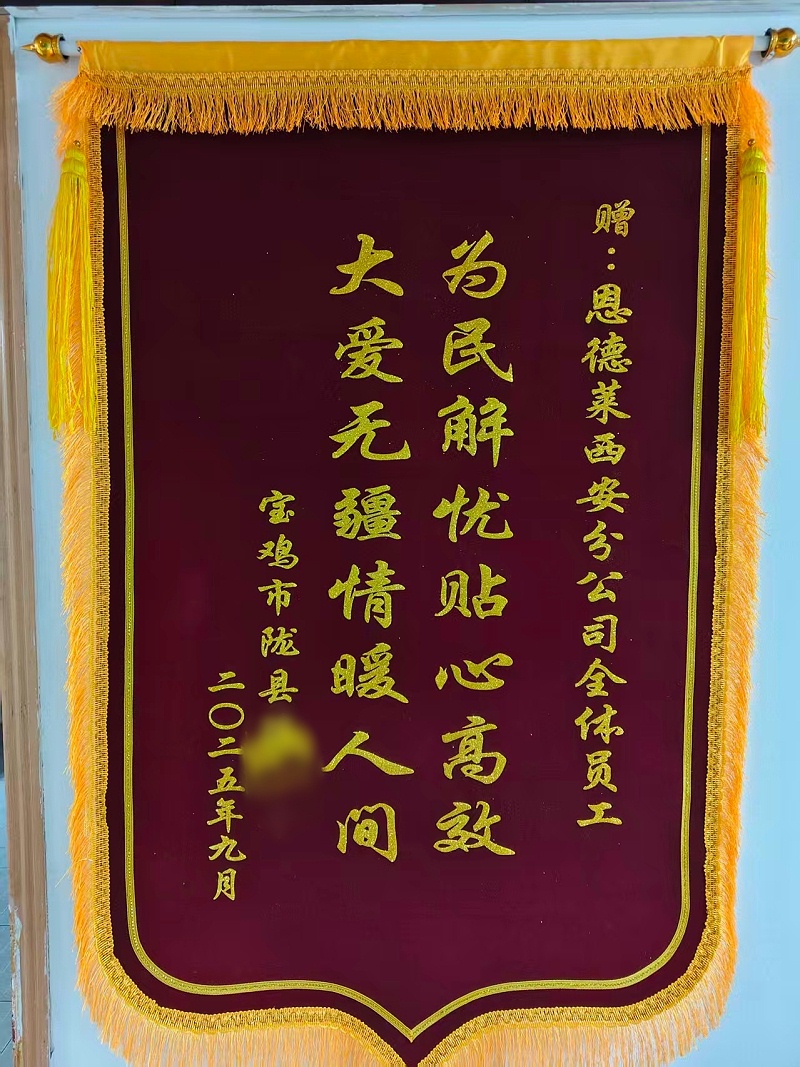 赠：恩德莱西安分公司全体员工
为民解忧贴心高效
大爱无疆情暖人间
宝鸡市陇县
二〇二五年九月